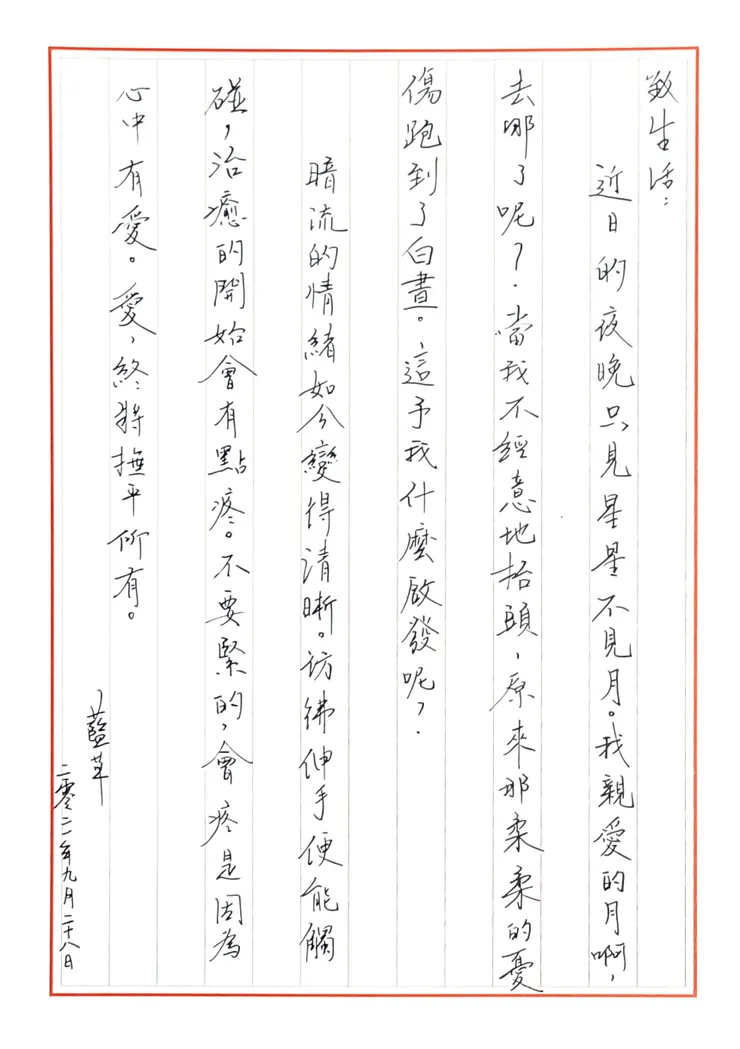 致生活：
近日的夜晚只見星星不見月。我親愛的月啊，
去哪了呢？當我不經意地抬頭，原來那柔柔的憂
傷跑到了白晝。這予我什麼啟發呢？
暗流的情緒如今變得清晰。彷彿伸手便能觸
碰，治癒的開始會有點疼。不要緊的，會疼是因為
心中有愛。愛，終將撫平所有。
、藍草
二零二一年九月二十八日